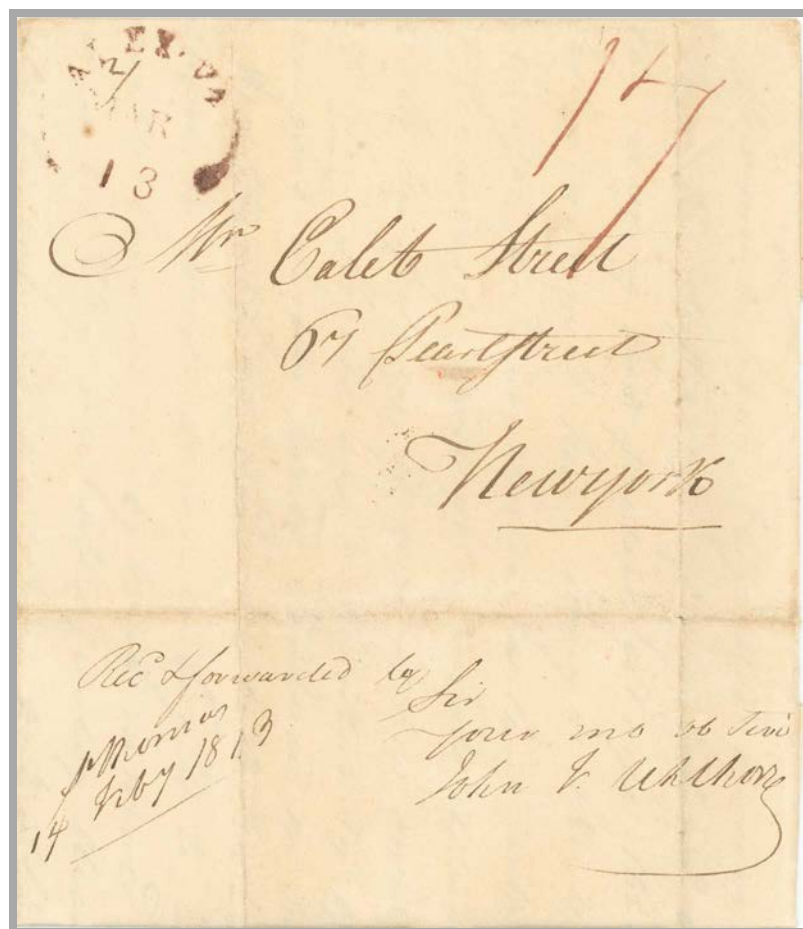 ALEX. DA
21
MAR
13
17
Mr Caleb Street
67 Pearl street
Newyork
Rec'd & forwarded by
Sir
your mo ob Serv
John F. Uhlhorn
St Thomas
14 Feby 1813